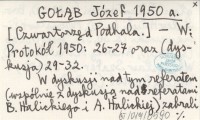 GOŁĄB Józef 1950 a.
[Czwartorzęd Podhala.] — W:
Protokół 1950: 26-27 oraz (dys-
kusja) 29-32.
W dyskusji nad tym referatem
(wspólnie z dyskusją nad referatami
B. Halickiego i A. Halickiej) zabrali